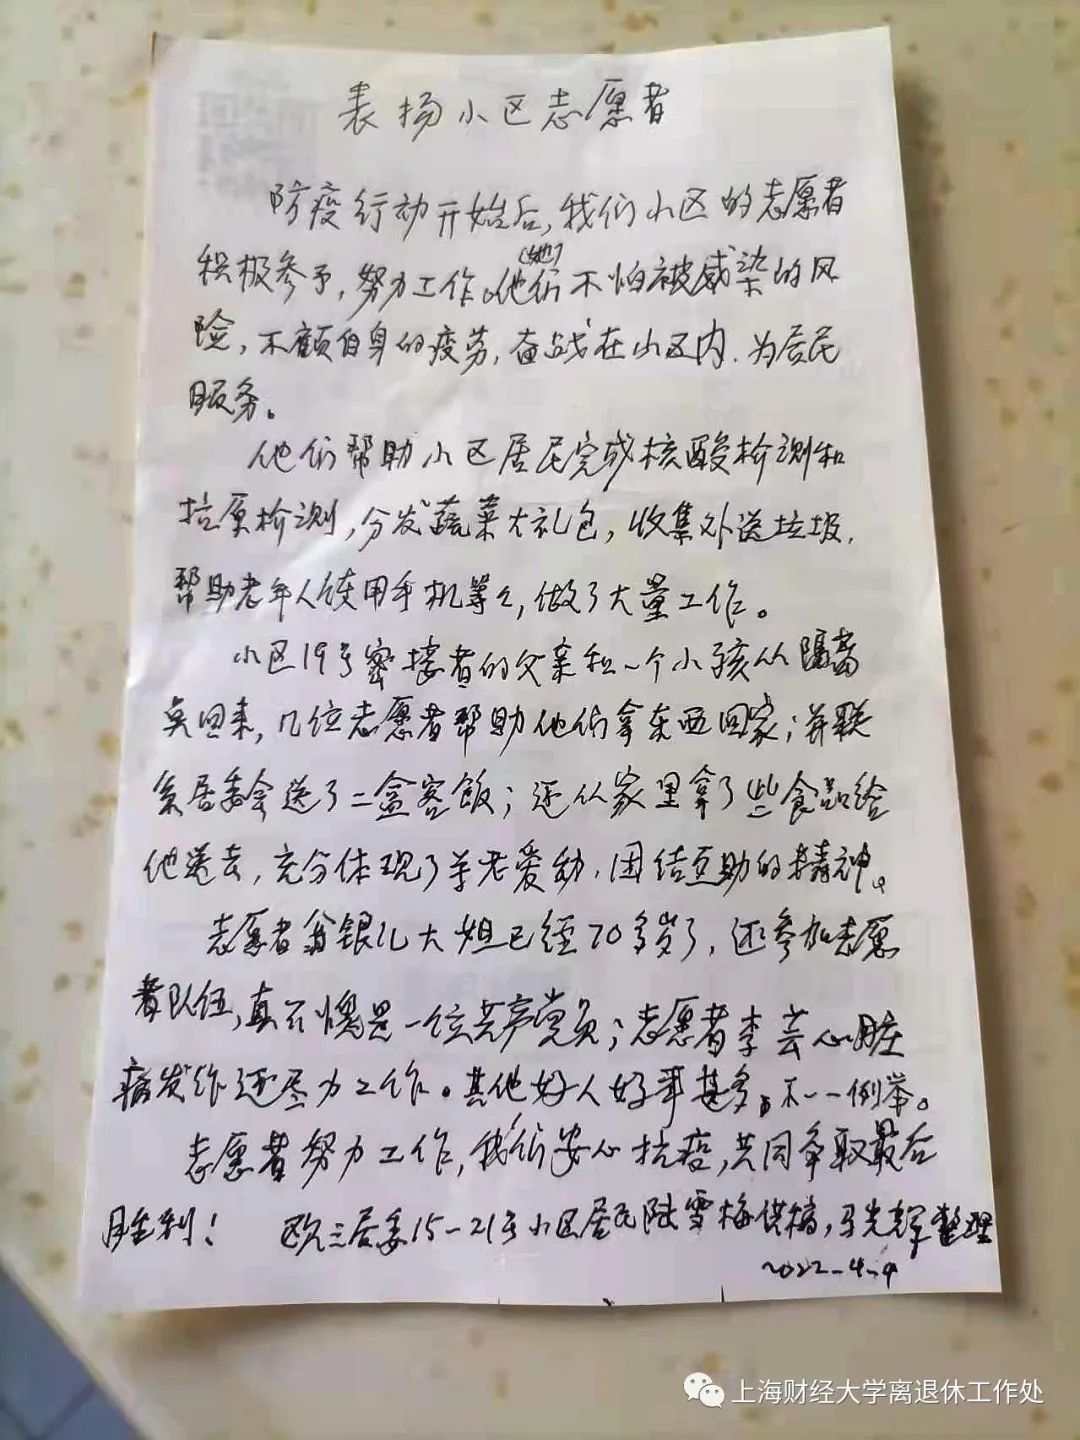 表扬小区志愿者
防疫行动开始后,我们小区的志愿者
积极参予,努力工作。他(她)们不怕被感染的风
险,不顾自身的疲劳,奋战在小区内、为居民
服务。
他们帮助小区居民完成核酸检测和
抗原检测,分发蔬菜大礼包,收集外送垃圾,
帮助老年人使用手机等等,做了大量工作。
小区19号密接者的父亲和一个小孩从隔离
点回来,几位志愿者帮助他们拿东西回家;并联
系居委会送了二盒客飯;还从家里拿了些食品给
他送去,充分体现了关老爱幼、团结互助的精神。
志愿者翁银儿大姐已经70多岁了,还参加志愿
者队伍,真不愧是一位共产党员;志愿者李芸心脏
病发作还尽力工作。其他好人好事甚多,不一一例举。
志愿者努力工作,我们安心抗疫,共同争取最后
胜利!
欧三居委15-21号小区居民陆雪梅供稿,马光辉整理
2022-4-9
上海财经大学离退休工作处